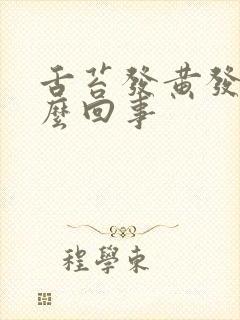 舌苔發黃發
麼回事
程學東